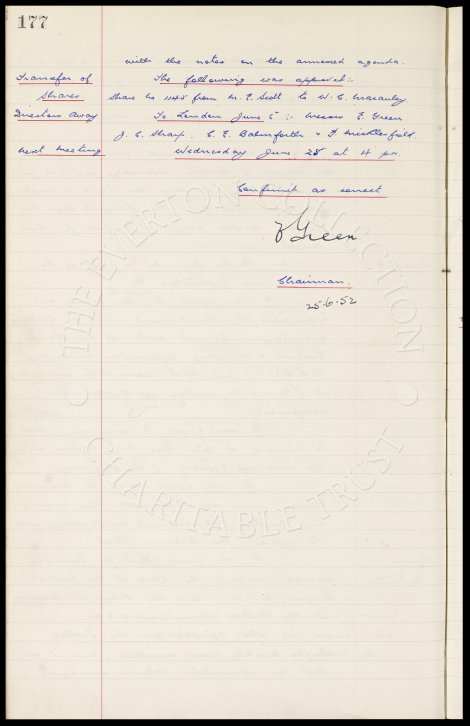 177
with the notes on the annexed agenda.
Transfer of The following was approved:-
Shares Share No 1145 from M. E. Scott to W. C. Macauley
Directors Away To London June 5 :- Messrs E Green
J. C. Sharp. C. E. Balmforth + F Micklesfield.
Next Meeting Wednesday June 25 at 4 pm.
Confirmed as correct
Green
Chairman.
25-6-52
THE EVERTON COLLECTION
CHARITABLE TRUST